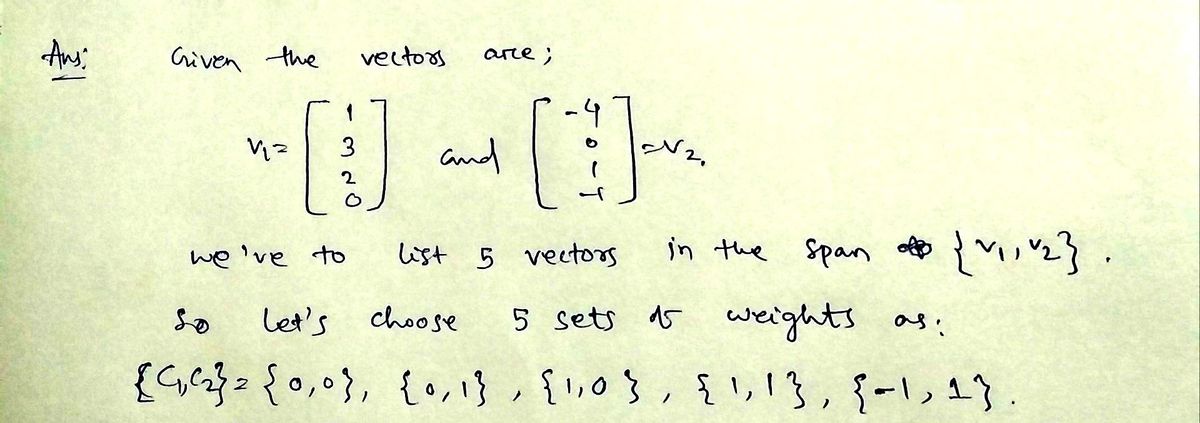 Ans: Given the vectors are;
V₁ = [1 3 2 0] and [-4 0 1 -1] = V₂.
we've to list 5 vectors in the span {V₁, V₂}.
So let's choose 5 sets of weights as:
{C₁,C₂} = {0,0}, {0,1}, {1,0}, {1,1}, {-1,1}.